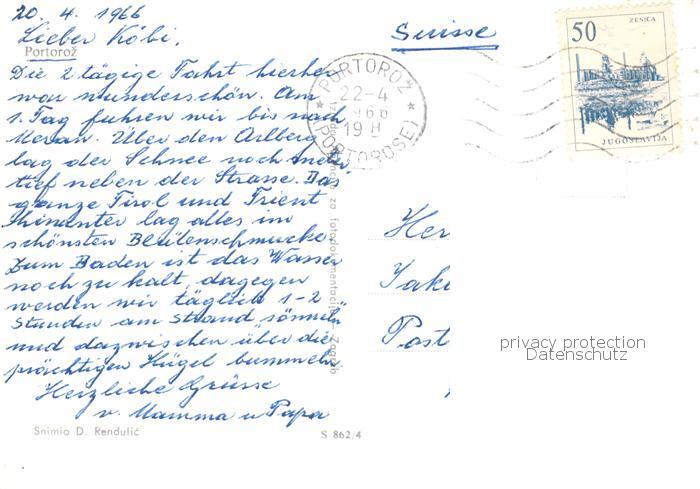 20. 4. 1966
Suisse
Lieber Köbi,
Portorož
Die 2 tägige Fahrt hierher
war wunderschön. Am
1. Tag fuhren wir bis nach
Meran. Über den Arlberg
lag der Schnee noch meter
tief neben der Strasse. Das
ganze Tirol und Trient
hinunter lag alles im
schönsten Blütenschmucke.
Zum Baden ist das Wasser
noch zu kalt, dagegen
werden wir täglich 1-2
Stunden am Strand sönnelen
und dazwischen über die
prächtigen Hügel bummeln.
Herzliche Grüsse
v. Mamma u Papa
Snimio D. Rendulić
S 862/4
za fotodokumentaciju - Zagreb
PORTOROŽ
22-4
1966
19 H
PORTOROSE
50
ZENICA
JUGOSLAVIJA
Her
Jak
Post
privacy protection
Datenschutz